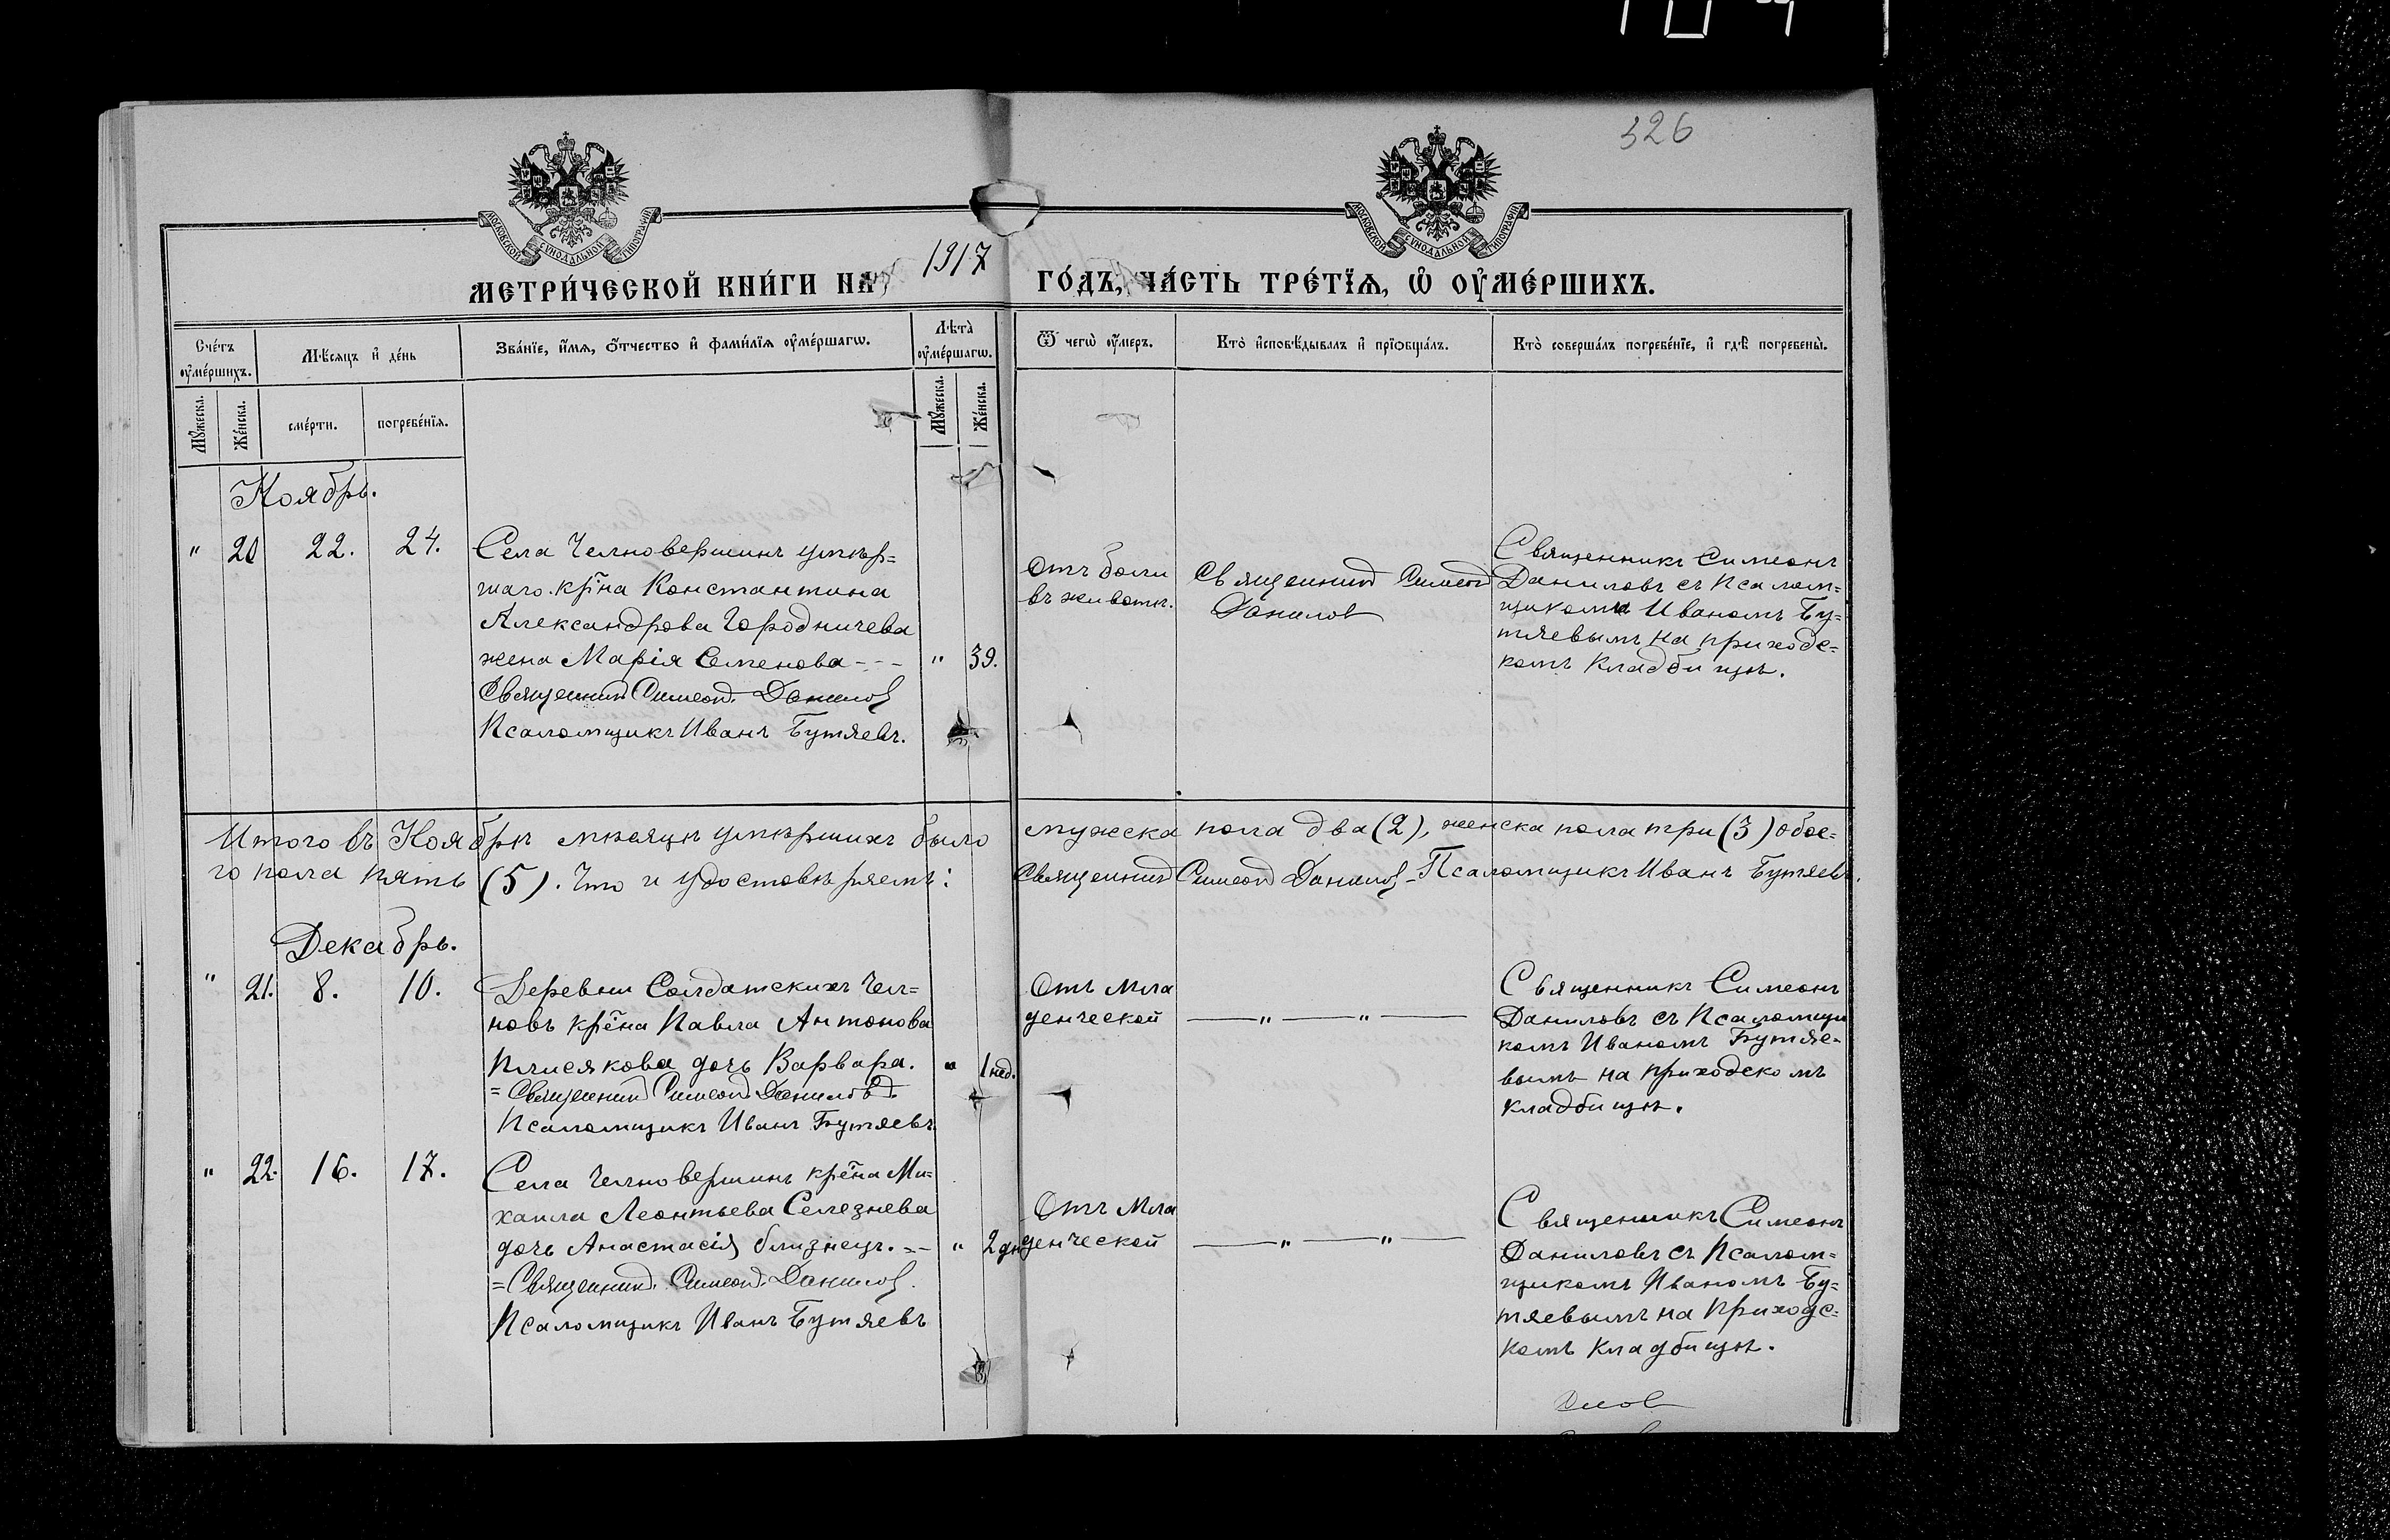 326
МОСКОВСКОЙ СѴНОДАЛЬНОЙ ТИПОГРАФІИ
МОСКОВСКОЙ СѴНОДАЛЬНОЙ ТИПОГРАФІИ
МЕТРИ́ЧЕСКОЙ КНИ́ГИ НА 1917 ГО́ДЪ, ЧА́СТЬ ТРЕ́ТЇѦ, Ѽ ОУ҆МЕ́РШИХЪ.
Сче́тъ оу҆ме́ршихъ.
Мѣ́сяцъ и҆ де́нь
Зва́нїе, и҆́мѧ, ѻ҆́тчество и҆ фами́лїѧ оу҆ме́ршагѡ.
Лѣта̀ оу҆ме́ршагѡ.
Ѿ чегѡ̀ оу҆́меръ.
Кто̀ и҆сповѣ́дывалъ и҆ прїѡбща́лъ.
Кто̀ соверша́лъ погребе́нїе, и҆ гдѣ̀ погребены̀.
Мꙋ́жеска.
Же́нска.
сме́рти.
погребе́нїѧ.
Мꙋ́жеска.
Же́нска.
Ноябрь.
" 20 22. 24.
Села Челновершинъ умѣр=
шаго кр̃на Константина
Александрова Городничева
жена Марія Семенова - - - " 39.
Священникъ Симеонъ Даниловъ
Псаломщикъ Иванъ Бутяевъ.
Отъ боли
въ животѣ.
Священникъ Симеонъ
Даниловъ
Священникъ Симеонъ
Даниловъ съ Псалом=
щикомъ Иваномъ Бу=
тяевымъ на приходс=
комъ кладбищѣ.
Итого въ Ноябрѣ мѣсяцѣ умѣршихъ было мужеска пола два (2), женска пола три (3) обое=
го пола пять (5). Что и удостовѣряемъ: Священникъ Симеонъ Даниловъ Псаломщикъ Иванъ Бутяевъ.
Декабрь.
" 21. 8. 10.
Деревни Солдатскихъ Чел=
новъ кре̃на Павла Антонова
Плисякова дочь Варвара. " 1 нед.
= Священникъ Симеонъ Даниловъ
Псаломщикъ Иванъ Бутяевъ.
Отъ Мла
денческой
— " — " —
Священникъ Симеонъ
Даниловъ съ Псаломщи
комъ Иваномъ Бутяе-
вымъ на приходскомъ
кладбищѣ.
" 22. 16. 17.
Села Челновершинъ кре̃на Ми=
хаила Леонтьева Селезнева
дочь Анастасія близнецъ. = - " 2 дн
= Священникъ Симеонъ Даниловъ.
Псаломщикъ Иванъ Бутяевъ
Отъ Мла
денческой
— " — " —
Священникъ Симеонъ
Даниловъ съ Псалом=
щикомъ Иваномъ Бу=
тяевымъ на Приходс=
комъ кладбищѣ.